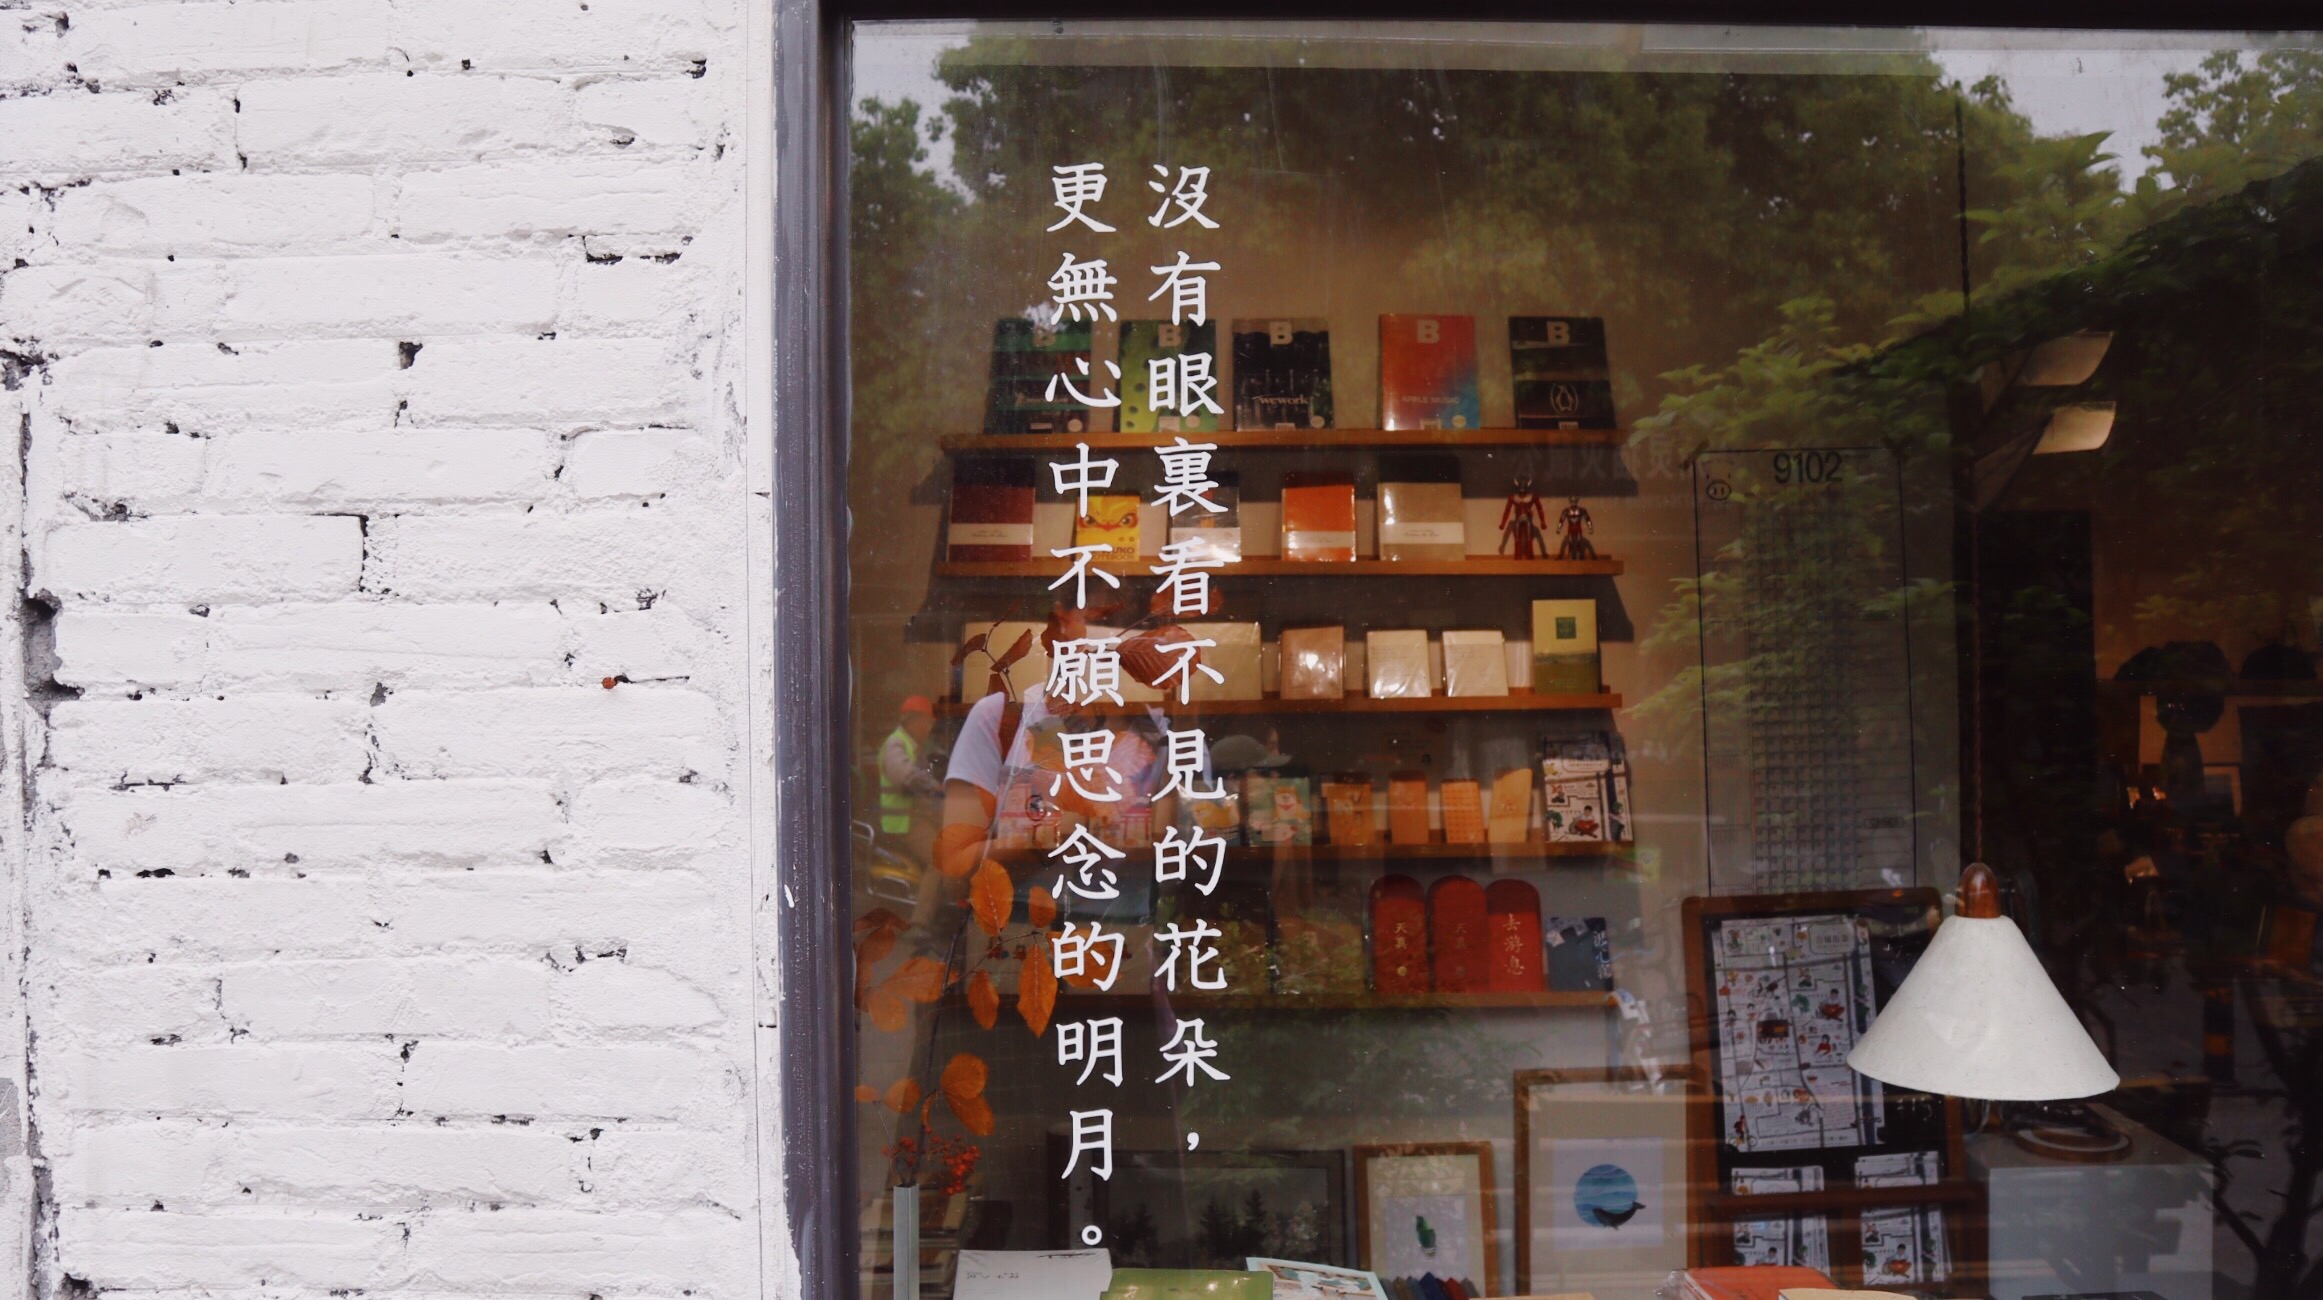 沒有眼裏看不見的花朵，
更無心中不願思念的明月。
B
B
B
B
B
wework
APPLE MUSIC
9102
天真
天真
去游息